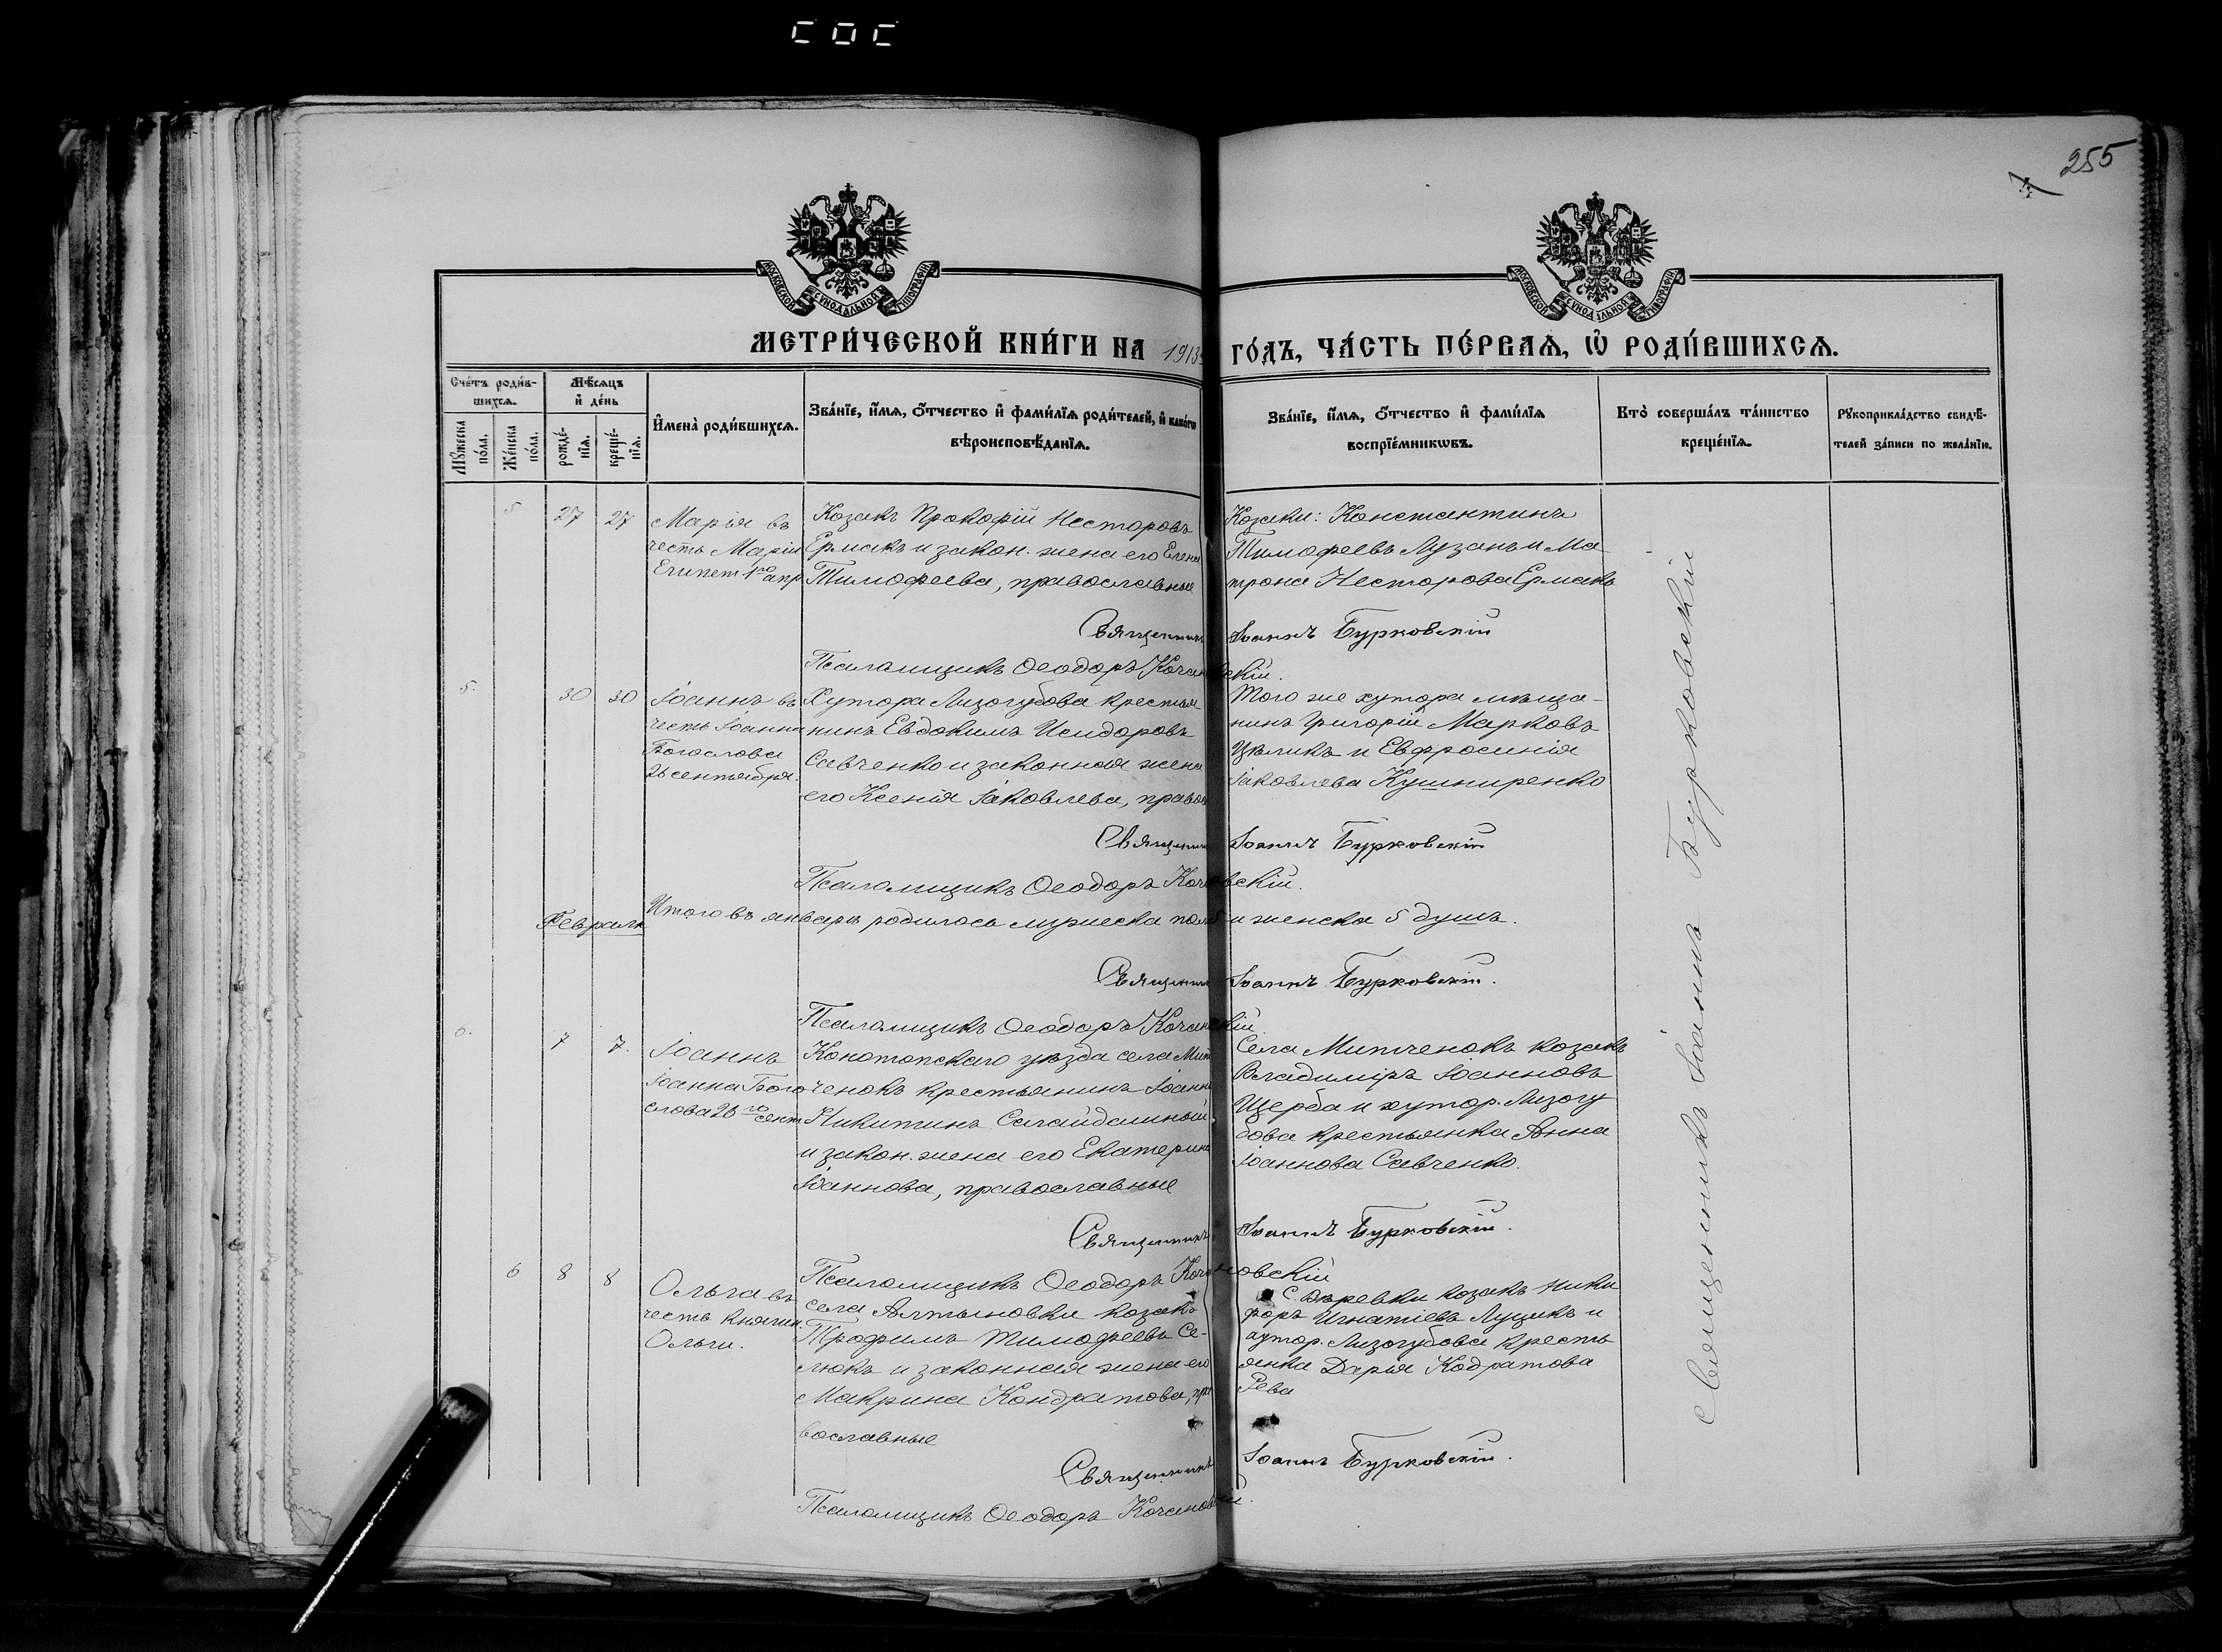 255
МОСКОВСКОЙ СУНОДАЛЬНОЙ ТИПОГРАФІИ
МОСКОВСКОЙ СУНОДАЛЬНОЙ ТИПОГРАФІИ
МЕТРИ́ЧЕСКОЙ КНИ́ГИ НА 1913 ГО́ДЪ, ЧА́СТЬ ПЕ́РВАѦ, Ѡ҆ РОДИ́ВШИХСѦ.
Сче́тъ роди́в-
шихсѧ.
Мꙋжеска по́ла.
Же́нска по́ла.
Мѣ́сѧцъ
и҆ де́нь
рожде́-
нїѧ.
креще́-
нїѧ.
И҆мена̀ роди́вшихсѧ.
Зва́нїе, и҆́мѧ, ѻ҆́тчество и҆ фами́лїѧ роди́телей, и҆ како́гѡ
вѣроисповѣ́данїѧ.
Зва́нїе, и҆́мѧ, ѻ҆́тчество и҆ фами́лїѧ
воспрїе́мникѡвъ.
Кто̀ соверша́лъ та́инство
креще́нїѧ.
Рꙋкоприкла́дство свидѣ́-
телей за́писи по жела́нїю.
5 27 27
Марія въ
честь Маріи
Египет 1го апр
Козакъ Прокорій Несторовъ
Ермакъ и закон. жена его Елена
Тимофеева, православные
Козаки: Константинъ
Тимофеевъ Лузанъ и Ма
трона Несторова Ермакъ
Священникъ Іоаннъ Бурковскій
Псаломщикъ Ѳеодоръ Кочановскій.
5. 30 30
Іоаннъ въ
честь Іоанна
Богослова
26 сентября.
Хутора Лизогубова крестья
нинъ Евдокимъ Исидоровъ
Савченко и законная жена
его Ксенія Іаковлева, правос
Того же хутора мѣща-
нинъ Григорій Марковъ
Цѣликъ и Евфросинія
Іаковлева Кушниренко
Священникъ Іоаннъ Бурковскій
Псаломщикъ Ѳеодоръ Кочановскій.
Февраль
Итого въ январѣ родилось мужеска пола 5 и женска 5 душъ.
Священникъ Іоаннъ Бурковскій.
Псаломщикъ Ѳеодоръ Кочановскій.
6. 7 7.
Іоаннъ
Іоанна Бого
слова 26го сент
Конотопскаго уѣзда села Мит
ченокъ крестьянинъ Іоаннъ
Никитинъ Салайдашный
и закон. жена его Екатерина
Іоаннова, православные
Села Митченокъ козакъ
Владиміръ Іоанновъ
Щерба и хутор. Лизогу
бова крестьянка Анна
Іоаннова Савченко.
Священникъ Іоаннъ Бурковскій.
Псаломщикъ Ѳеодоръ Кочановскій
6 8 8
Ольга въ
честь княгин.
Ольги.
села Алтыновки козакъ
Трофимъ Тимофеевъ Се-
люкъ и законная жена его
Макрина Кондратова, пра
вославные
с. козакъ Ники
форъ Игнатіевъ Луцикъ и
хутор. Лизогубова кресть
янка Дарія Кодратова
Рева
Священникъ Іоаннъ Бурковскій.
Псаломщикъ Ѳеодоръ Кочановскій.
Священникъ Іоаннъ Бурковскій